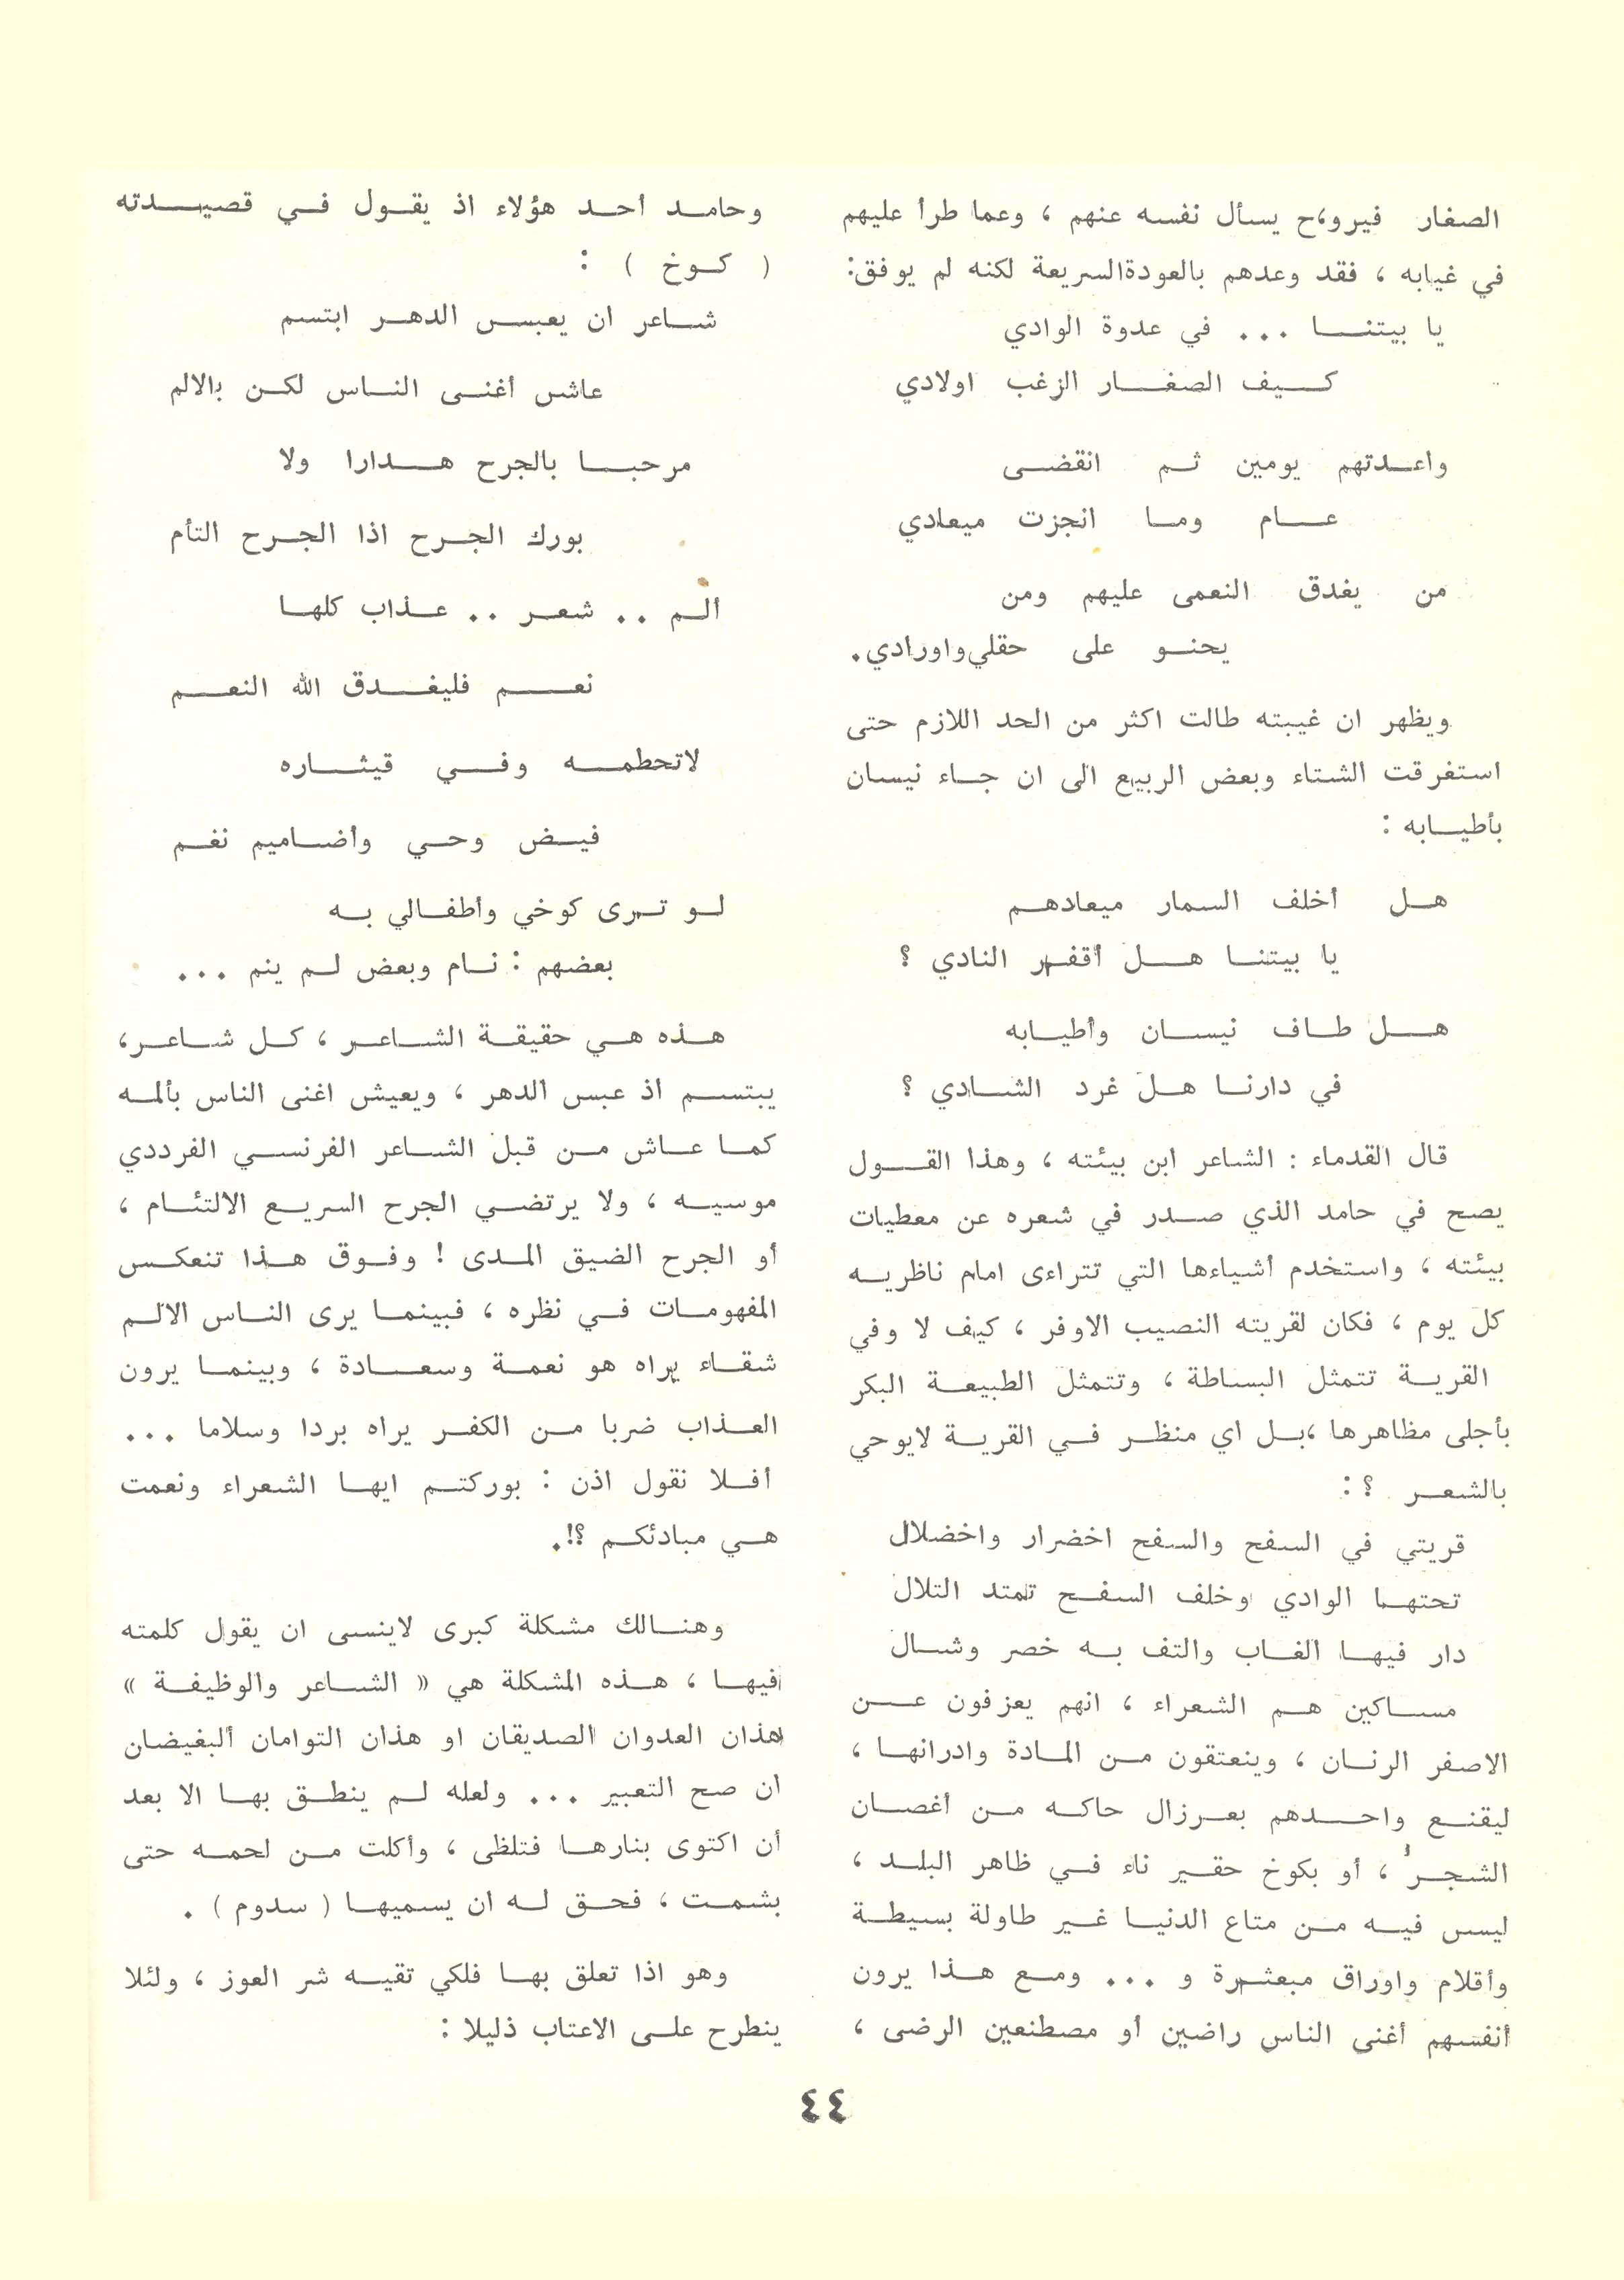 الصغار فيروح يسأل نفسه عنهم ، وعما طرأ عليهم
في غيابه ، فقد وعدهم بالعودةالسريعة لكنه لم يوفق:
يا بيتنا ... في عدوة الوادي
كيف الصغار الزغب اولادي
واعدتهم يومين ثم انقضى
عام وما انجزت ميعادي
من يغدق النعمى عليهم ومن
يحنو على حقلي واورادي.
ويظهر ان غيبته طالت اكثر من الحد اللازم حتى
استغرقت الشتاء وبعض الربيع الى ان جاء نيسان
بأطيابه :
هل أخلف السمار ميعادهم
يا بيتنا هل أقفر النادي ؟
هل طاف نيسان وأطيابه
في دارنا هل غرد الشادي ؟
قال القدماء : الشاعر ابن بيئته ، وهذا القول
يصح في حامد الذي صدر في شعره عن معطيات
بيئته ، واستخدم أشياءها التي تتراءى امام ناظريه
كل يوم ، فكان لقريته النصيب الاوفر ، كيف لا وفي
القرية تتمثل البساطة ، وتتمثل الطبيعة البكر
بأجلى مظاهرها ،بل اي منظر في القرية لايوحي
بالشعر ؟ :
قريتي في السفح والسفح اخضرار واخضلال
تحتها الوادي وخلف السفح تمتد التلال
دار فيها الغاب والتف به خصر وشال
مساكين هم الشعراء ، انهم يعزفون عن
الاصفر الرنان ، وينعتقون من المادة وادرانها ،
ليقنع واحدهم بعرزال حاكه من أغصان
الشجر ، أو بكوخ حقير ناء في ظاهر البلد ،
ليس فيه من متاع الدنيا غير طاولة بسيطة
وأقلام واوراق مبعثرة و ... ومع هذا يرون
أنفسهم أغنى الناس راضين أو مصطنعين الرضى ،
وحامد أحد هؤلاء اذ يقول في قصيدته
( كوخ ) :
شاعر ان يعبس الدهر ابتسم
عاش أغنى الناس لكن بالالم
مرحبا بالجرح هدارا ولا
بورك الجرح اذا الجرح التأم
ألم .. شعر .. عذاب كلها
نعم فليغدق الله النعم
لاتحطمه وفي قيثاره
فيض وحي وأضاميم نغم
لو ترى كوخي وأطفالي به
بعضهم : نام وبعض لم ينم ...
هذه هي حقيقة الشاعر ، كل شاعر،
يبتسم اذ عبس الدهر ، ويعيش اغنى الناس بألمه
كما عاش من قبل الشاعر الفرنسي الفرددي
موسيه ، ولا يرتضي الجرح السريع الالتئام ،
أو الجرح الضيق المدى ! وفوق هذا تنعكس
المفهومات في نظره ، فبينما يرى الناس الالم
شقاء يراه هو نعمة وسعادة ، وبينما يرون
العذاب ضربا من الكفر يراه بردا وسلاما ...
أفلا نقول اذن : بوركتم ايها الشعراء ونعمت
هي مبادئكم ؟!.
وهنالك مشكلة كبرى لاينسى ان يقول كلمته
فيها ، هذه المشكلة هي « الشاعر والوظيفة »
هذان العدوان الصديقان او هذان التوامان ألبغيضان
ان صح التعبير ... ولعله لم ينطق بها الا بعد
أن اكتوى بنارها فتلظى ، وأكلت من لحمه حتى
بشمت ، فحق له ان يسميها ( سدوم ) .
وهو اذا تعلق بها فلكي تقيه شر العوز ، ولئلا
ينطرح على الاعتاب ذليلا :
٤٤